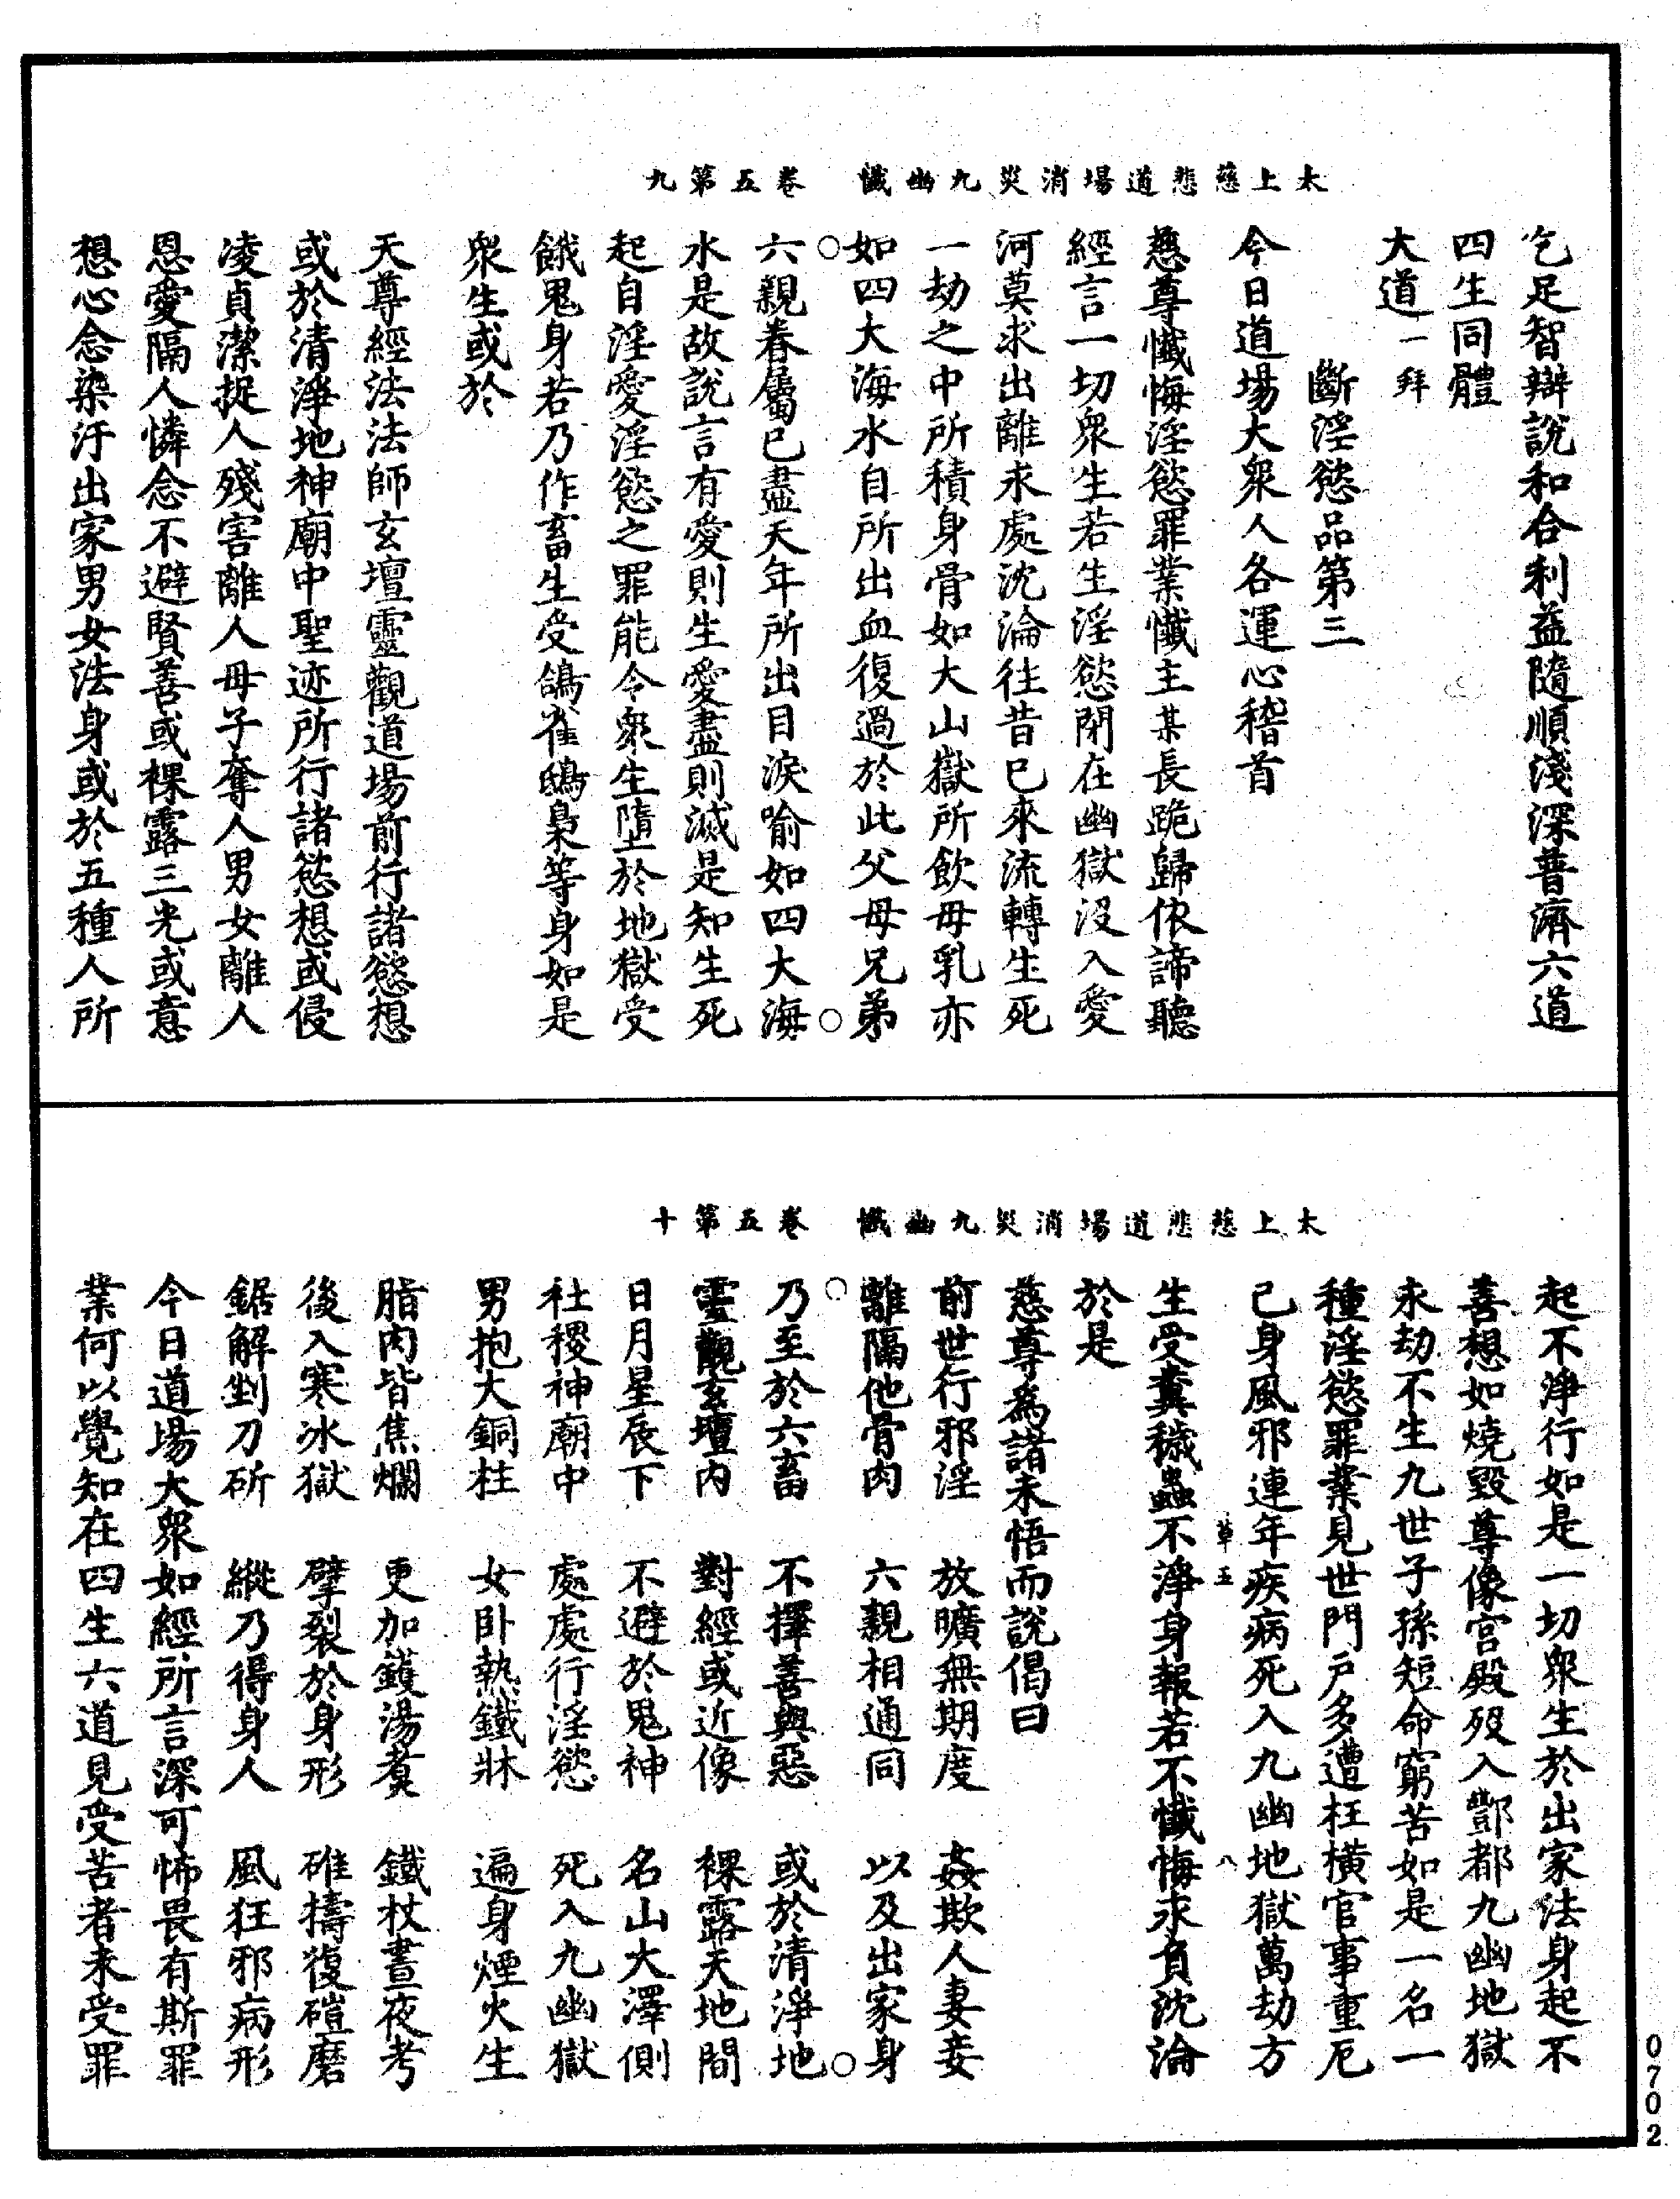 太上慈悲道場消災九幽懺　卷五第九
乞足智辯說和合利益隨順淺深普濟六道
四生同體
大道一拜
斷淫慾品第三
今日道場大衆人各運心稽首
慈尊懺悔淫慾罪業懺主某長跪歸依諦聽
經言一切衆生若生淫慾閉在幽獄沒入愛
河莫求出離求處沈淪往昔已來流轉生死
一劫之中所積身骨如大山嶽所飲母乳亦
如四大海水自所出血復過於此父母兄弟
六親眷屬已盡天年所出目淚喻如四大海
水是故說言有愛則生愛盡則滅是知生死
起自淫愛淫慾之罪能令衆生墮於地獄受
餓鬼身若乃作畜生受鴿雀鴟梟等身如是
衆生或於
天尊經法法師玄壇靈觀道場前行諸慾想
或於清淨地神廟中聖迹所行諸慾想或侵
凌貞潔捉人殘害離人母子奪人男女離人
恩愛隔人憐念不避賢善或裸露三光或意
想心念染汙出家男女法身或於五種人所
太上慈悲道場消災九幽懺　卷五第十
起不淨行如是一切衆生於出家法身起不
善想如燒毀尊像宮殿歿入酆都九幽地獄
永劫不生九世子孫短命窮苦如是一名一
種淫慾罪業見世門戶多遭枉橫官事重厄
己身風邪連年疾病死入九幽地獄萬劫方
草五　八
生受糞穢蟲不淨身報若不懺悔永負沈淪
於是
慈尊為諸未悟而說偈曰
前世行邪淫　放曠無期度　姦欺人妻妾
離隔他骨肉　六親相通同　以及出家身
乃至於六畜　不擇善與惡　或於清淨地
靈觀玄壇內　對經或近像　裸露天地間
日月星辰下　不避於鬼神　名山大澤側
社稷神廟中　處處行淫慾　死入九幽獄
男抱大銅柱　女卧熱鐵牀　遍身煙火生
脂肉皆焦爛　更加鑊湯煑　鐵杖晝夜考
後入寒冰獄　擘裂於身形　碓擣復磑磨
鋸解剉刀斫　縱乃得身人　風狂邪病形
今日道場大衆如經所言深可怖畏有斯罪
業何以覺知在四生六道見受苦者未受罪
0702